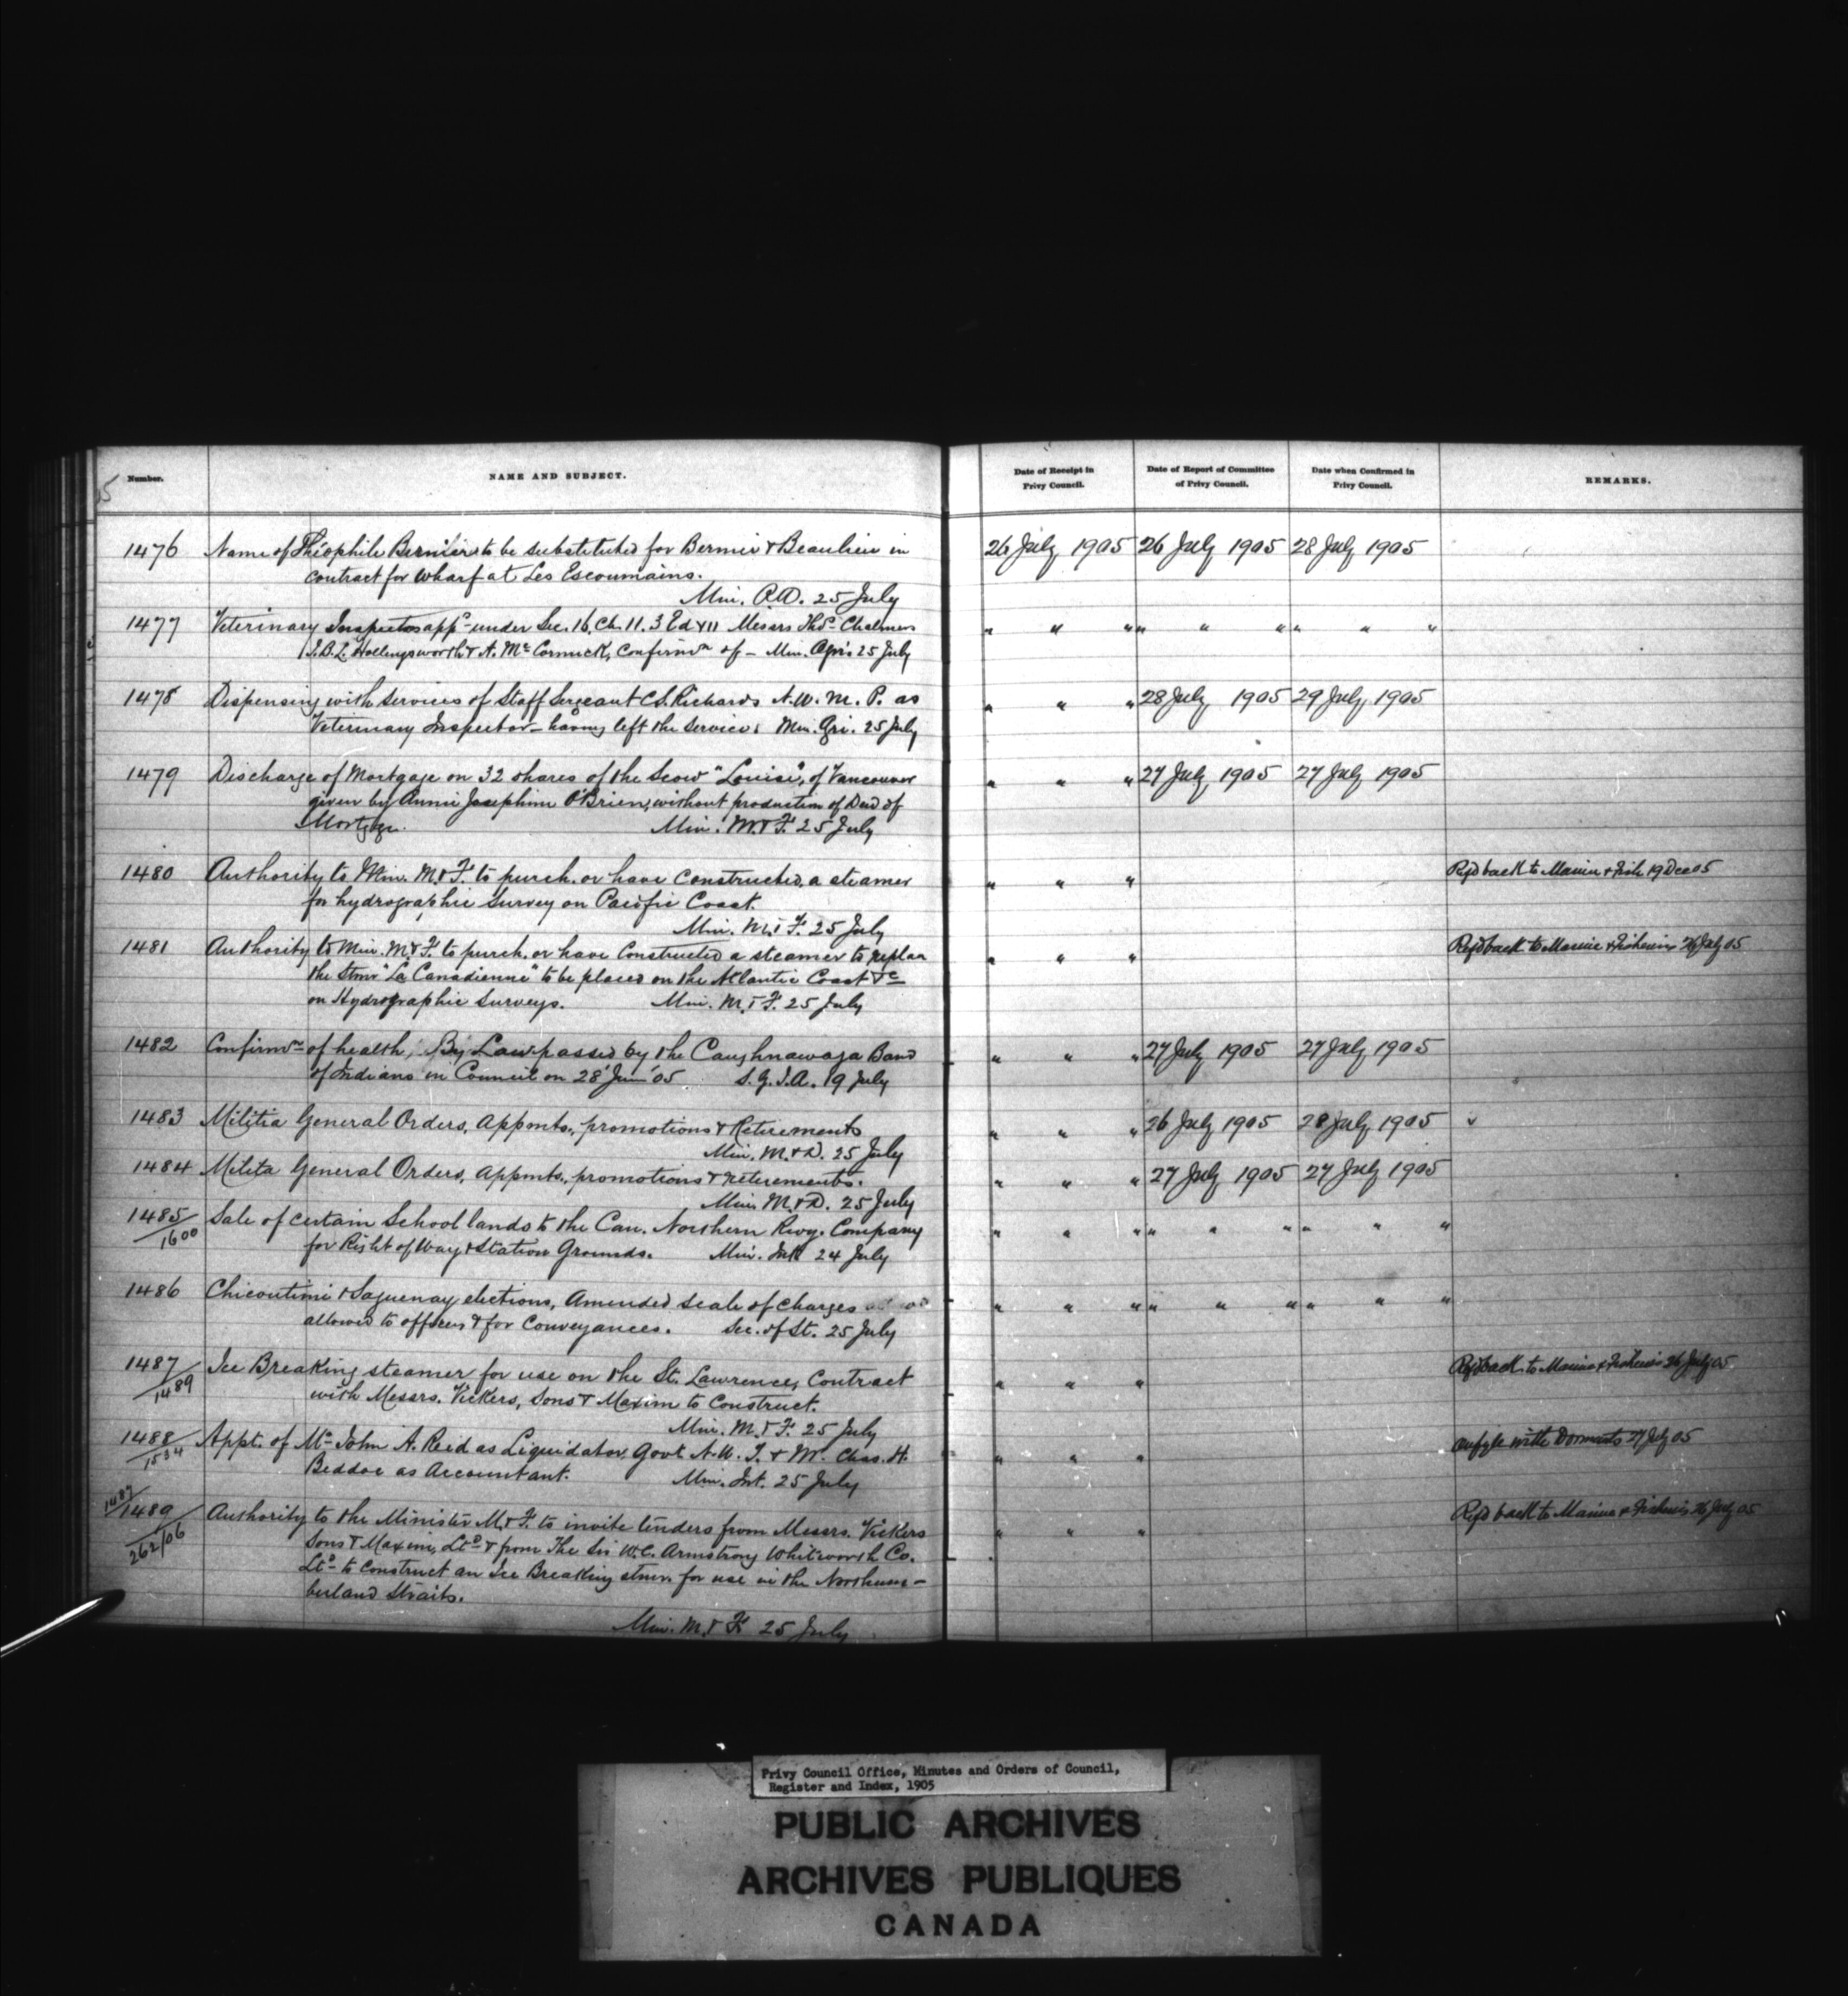 Number.
NAME AND SUBJECT.
Date of Receipt in Privy Council.
Date of Report of Committee of Privy Council.
Date when Confirmed in Privy Council.
REMARKS.
1476 Name of Théophile Bernier to be substituted for Bernier & Beaulieu in 26 July 1905 26 July 1905 28 July 1905
contract for wharf at Les Escoumains.
Min. P.W. 25 July
1477 Veterinary Inspectors app under Sec. 16, Ch. 11. 3 Ed VII Messrs Thos Chalmers " " " " " " " " "
J.B.L. Hollingsworth & A. Mc Cormick, Confirmn of - Min. Agri. 25 July
1478 Dispensing with services of Staff Sergeant C.S. Richards N.W.M.P. as " " " 28 July 1905 29 July 1905
Veterinary Inspector - having left the service. Min. Agri. 25 July
1479 Discharge of Mortgage on 32 shares of the Scow "Louise", of Vancouver " " " 27 July 1905 27 July 1905
given by Annie Josephine O'Brien, without production of Deed of
Mortgage. Min. M. & F. 25 July
1480 Authority to Min. M. & F. to purch. or have constructed, a steamer " " " Refd back to Marine & Fish 19 Dec 05
for hydrographic Survey on Pacific Coast.
Min. M. & F. 25 July
1481 Authority to Min. M. & F. to purch. or have Constructed a steamer to replace " " " Refd back to Marine & Fisheries 26 July 05
the Stmr "La Canadienne" to be placed on the Atlantic Coast &c
on Hydrographic Surveys. Min. M. & F. 25 July
1482 Confirmn of health By Law passed by the Caughnawaga Band " " " 27 July 1905 27 July 1905
of Indians in Council on 28 June '05 S.G.I.A. 19 July
1483 Militia General Orders, Appmts., promotions & Retirements " " " 26 July 1905 28 July 1905
Min. M. & D. 25 July
1484 Milita General Orders, Appmts., promotions & retirements. " " " 27 July 1905 27 July 1905
Min. M. & D. 25 July
1485/1600 Sale of certain School lands to the Can. Northern Rwy. Company " " " " " " " " "
for Right of Way & Station Grounds. Min. Int 24 July
1486 Chicoutimi & Saguenay elections, Amended scale of charges " " " " " " " " "
allowed to officers & for Conveyances. Sec. of St. 25 July
1487/1489 Ice Breaking steamer for use on the St. Lawrence, Contract " " " Refd back to Marine & Fisheries 26 July 05
with Messrs. Vickers, Sons & Maxim to Construct.
Min. M. & F. 25 July
1488/1534 Appt. of Mr John A. Reid as Liquidator, Govt N.W.T. & Mr. Chas. H. " " " with Dormants 27 July 05
Beddoe as Accountant. Min. Int. 25 July
1487/1489 262/06 Authority to the Minister M. & F. to invite tenders from Messrs. Vickers " " " Refd back to Marine & Fisheries 26 July 05
Sons & Maxim, Ltd & from The Sir W.C. Armstrong Whitworth Co.
Ltd to Construct an Ice Breaking stmr. for use in the Northum-
berland Straits.
Min. M. & F. 25 July
Privy Council Office, Minutes and Orders of Council,
Register and Index, 1905
PUBLIC ARCHIVES
ARCHIVES PUBLIQUES
CANADA